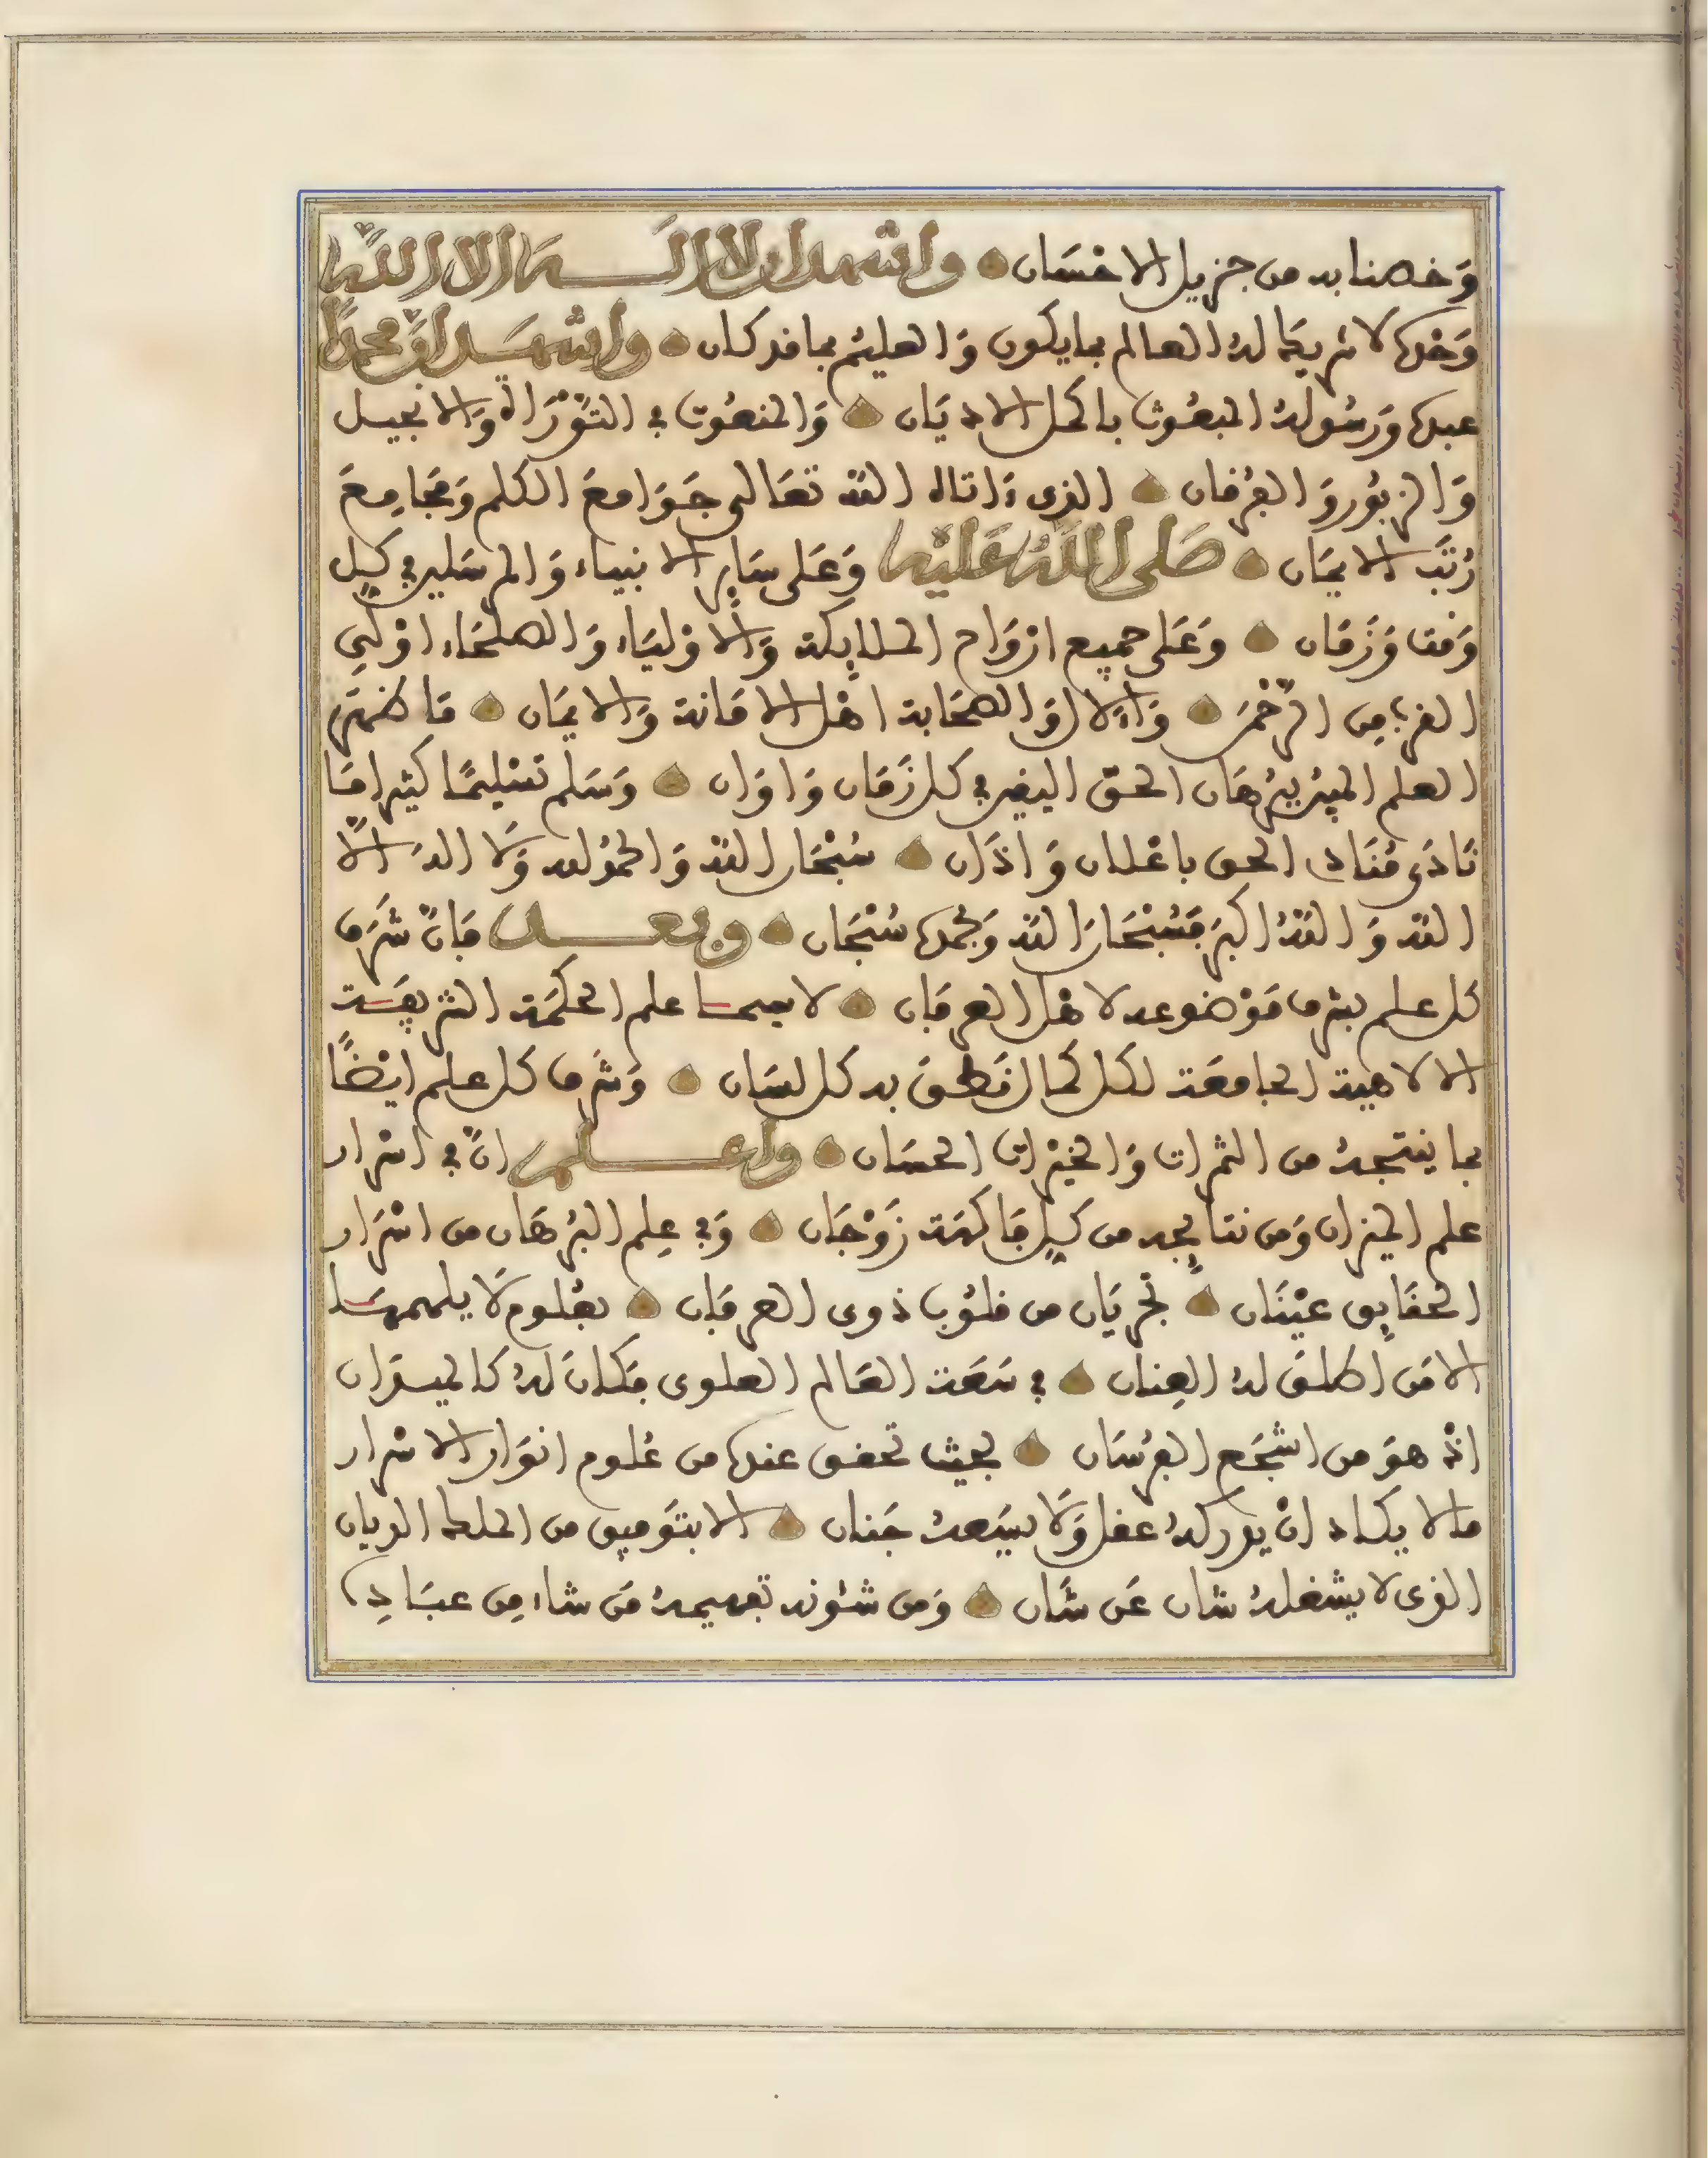 وَخصنا به من جزيل الاحْسَان واشهد ان لا اله الا اللّه
وَحْده لا شريكَ لهُ العالم بما يكون وَالعليْم بما قد كان واشهد انّ محمدًا
عبده وَرسُولهُ المبعُوث باكمل الاديَان وَالمنعُوت في التوْرَاة وَالانجيل
وَالزبُور وَالفرْقان الذى ءَاتاه اللّه تعَالى جَوَامعَ الكلم وَمجَامِعَ
رُتَب الايمَان صَلى اللّهُ عَليْه وَعَلى سَاير الانبياء وَالمرسَلين في كل
وَقت وَزَمَان وَعَلى جميع ارْوَاح الملايكة وَالاوْليَاء وَالصلحَاء اوْلي
القربِ من الرّحْمن وَالال وَالصحَابة اهْل الامَانة وَالايمَان مَا ظهَرَ
العلم المبيْن ببرْهَان الحقّ اليقين في كل زَمَان وَاوَان وَسَلم تسْليمًا كثيرا مَا
نَادَى مُنَادِى الحق باعْلان وَاذَان سُبْحَان اللّه وَالحمْد لله وَلَا الهَ الاّ
اللّه وَاللّهُ اكبَر فسُبْحَانَ اللّه وَبحمده سُبْحَان وبعد فَانّ شَرَف
كل علم بشرف مَوْضوعه لاهْل العرفَان لا سيما علم الحكمَة الشريفَة
الالاهية الجامعَة لكل كمال نَطَقَ به كل لسَان وَشرَف كل علم ايْضًا
بما ينتجهُ من الثمرات وَالخيْرات الحسَان واعلم انّ في اسْرار
علم الميزان وَمن نتايجه من كل فَاكهَة زَوْجَان وَفي عِلم البرْهَان من اسْرَار
الحقَايق عيْنَان تجْريَان من قلوُب ذوى العرفَان بعُلوم لَا يلهمهَا
الا مَن اطلقَ لهُ العِنان في سَعَة العَالم العلوى فكَانَ لهُ كالميدَان
اذْ هوَ من اشجَع الفرْسَان بحيث تحقق عنده من عُلوم انوَار الاسْرار
مالا يكاد انْ يدركهُ عقل وَلَا يسَعهُ جَنان الا بتَوفيق من الملك الديان
الذى لا يشغلهُ شان عَن شَان وَمن شئونه تفهيمهُ مَن شاء مِن عبَادِه